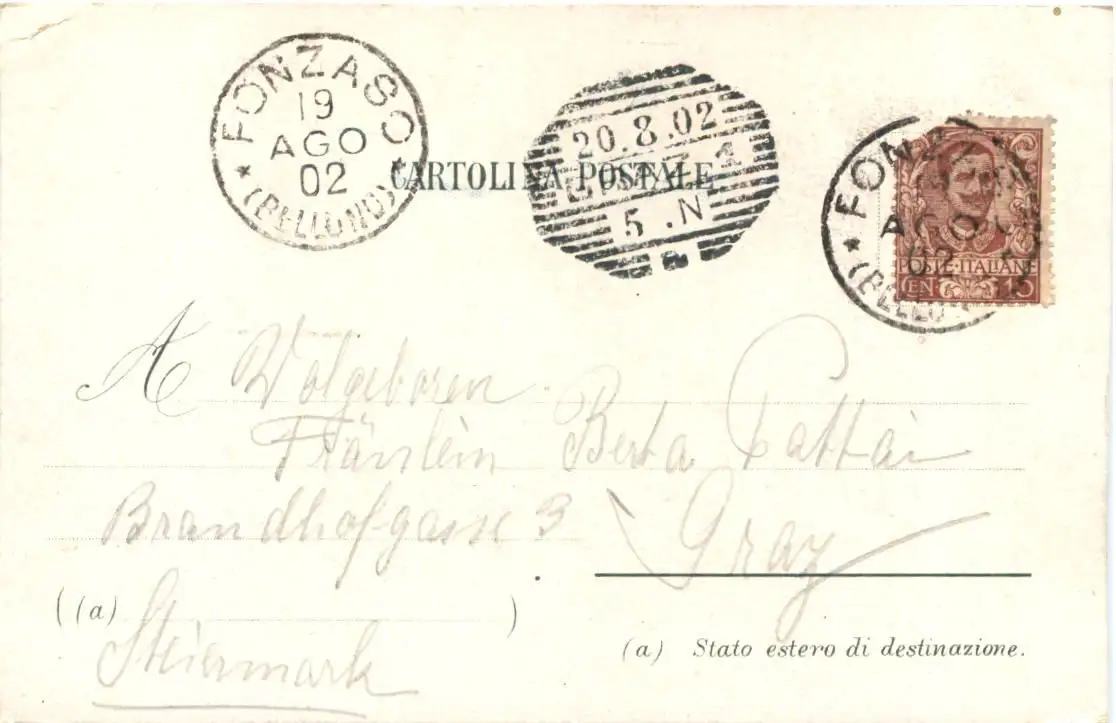 FONZASO
19
AGO
02
(BELLUNO)
CARTOLINA POSTALE
20.8.02
GRAZ 1
5 . N
FONZASO
AGO
02
(BELLUNO)
POSTE·ITALIANE
CEN 10
A Wolgeboren
Fräulein Berta Pattai
Brandhofgasse 3 Graz
(a)
Steiermark
(a) Stato estero di destinazione.